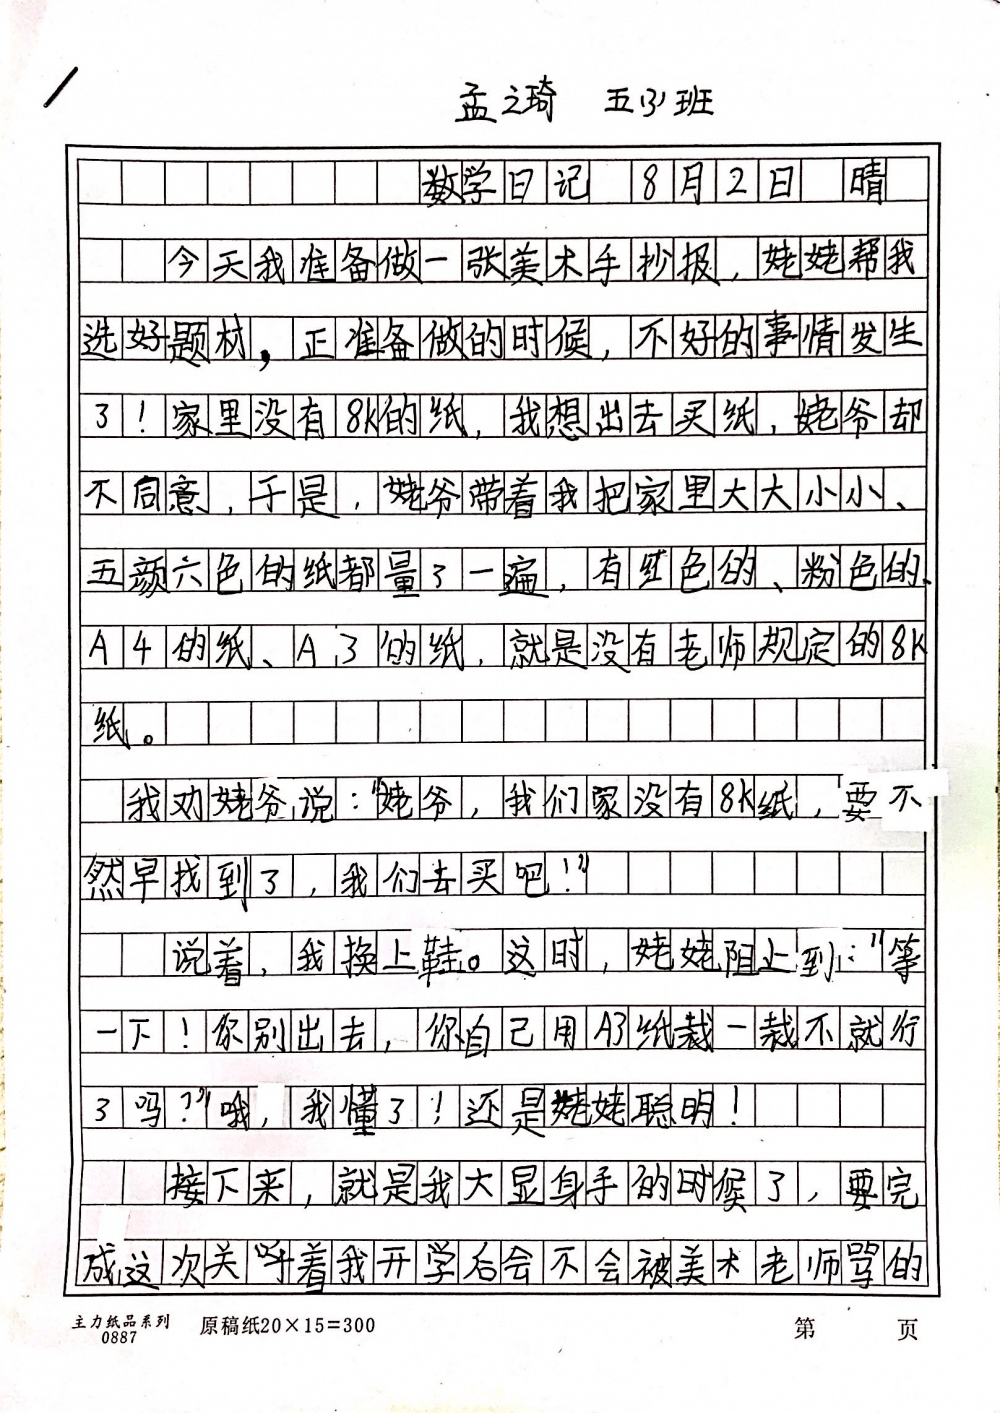 孟之琦 五(3)班
数学日记 8月2日 晴
今天我准备做一张美术手抄报，姥姥帮我
选好题材，正准备做的时候，不好的事情发生
了！家里没有8K的纸，我想出去买纸，姥爷却
不同意，于是，姥爷带着我把家里大大小小、
五颜六色的纸都量了一遍，有红色的、粉色的、
A4的纸、A3的纸，就是没有老师规定的8K
纸。
我劝姥爷说：“姥爷，我们家没有8K纸，要不
然早找到了，我们去买吧！”
说着，我换上鞋。这时，姥姥阻止到：“等
一下！你别出去，你自己用A3纸裁一裁不就行
了吗？”哦，我懂了！还是姥姥聪明！
接下来，就是我大显身手的时候了，要完
成这次关呼着我开学后会不会被美术老师骂的
主力纸品系列
0887
原稿纸20×15=300
第 页